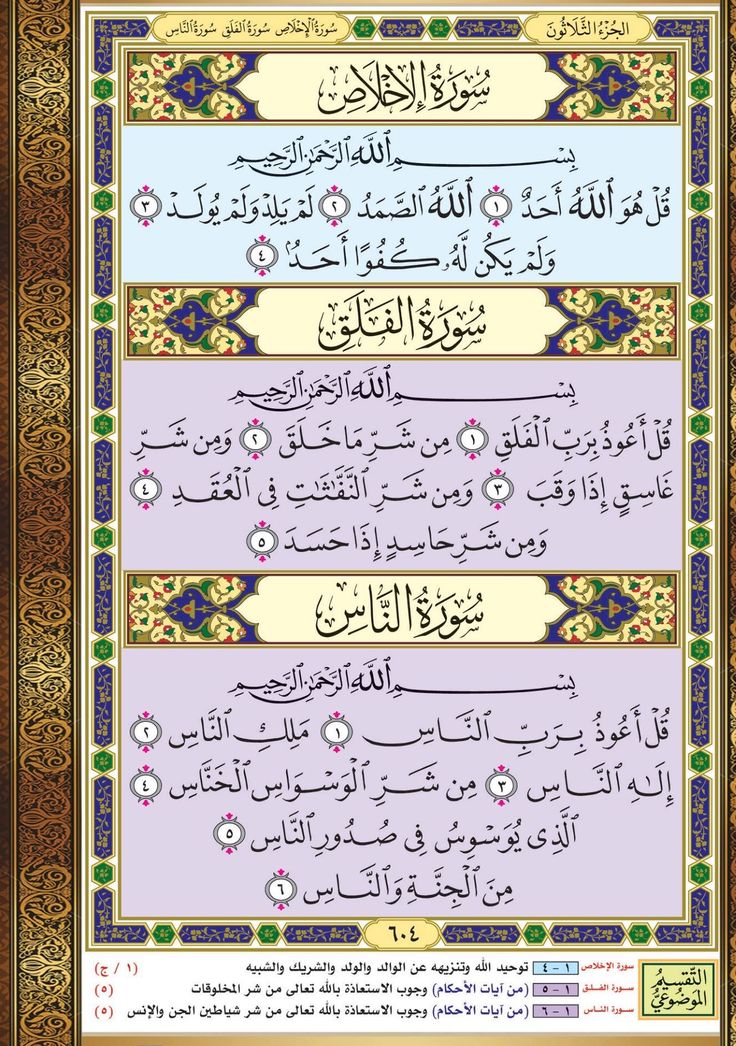 الجُزْءُ الثَّلَاثُونَ سُورَةُ الْإِخْلَاصِ سُورَةُ الفَلَقِ سُورَةُ النَّاسِ
سُورَةُ الإِخْلَاصِ
بِسْمِ ٱللَّهِ ٱلرَّحْمَٰنِ ٱلرَّحِيمِ
قُلْ هُوَ ٱللَّهُ أَحَدٌ ١ ٱللَّهُ ٱلصَّمَدُ ٢ لَمْ يَلِدْ وَلَمْ يُولَدْ ٣
وَلَمْ يَكُن لَّهُۥ كُفُوًا أَحَدٌۢ ٤
سُورَةُ الفَلَقِ
بِسْمِ ٱللَّهِ ٱلرَّحْمَٰنِ ٱلرَّحِيمِ
قُلْ أَعُوذُ بِرَبِّ ٱلْفَلَقِ ١ مِن شَرِّ مَا خَلَقَ ٢ وَمِن شَرِّ
غَاسِقٍ إِذَا وَقَبَ ٣ وَمِن شَرِّ ٱلنَّفَّٰثَٰتِ فِى ٱلْعُقَدِ ٤
وَمِن شَرِّ حَاسِدٍ إِذَا حَسَدَ ٥
سُورَةُ النَّاسِ
بِسْمِ ٱللَّهِ ٱلرَّحْمَٰنِ ٱلرَّحِيمِ
قُلْ أَعُوذُ بِرَبِّ ٱلنَّاسِ ١ مَلِكِ ٱلنَّاسِ ٢
إِلَٰهِ ٱلنَّاسِ ٣ مِن شَرِّ ٱلْوَسْوَاسِ ٱلْخَنَّاسِ ٤
ٱلَّذِى يُوَسْوِسُ فِى صُدُورِ ٱلنَّاسِ ٥
مِنَ ٱلْجِنَّةِ وَٱلنَّاسِ ٦
٦٠٤
التَّقْسِيمُ
المَوْضُوعِيُّ
سورة الإخلاص ١ - ٤ توحيد الله وتنزيهه عن الوالد والولد والشريك والشبيه (١ / ج)
سورة الفـلـق ١ - ٥ (من آيات الأحكام) وجوب الاستعاذة بالله تعالى من شر المخلوقات (٥)
سورة الناس ١ - ٦ (من آيات الأحكام) وجوب الاستعاذة بالله تعالى من شر شياطين الجن والإنس (٥)